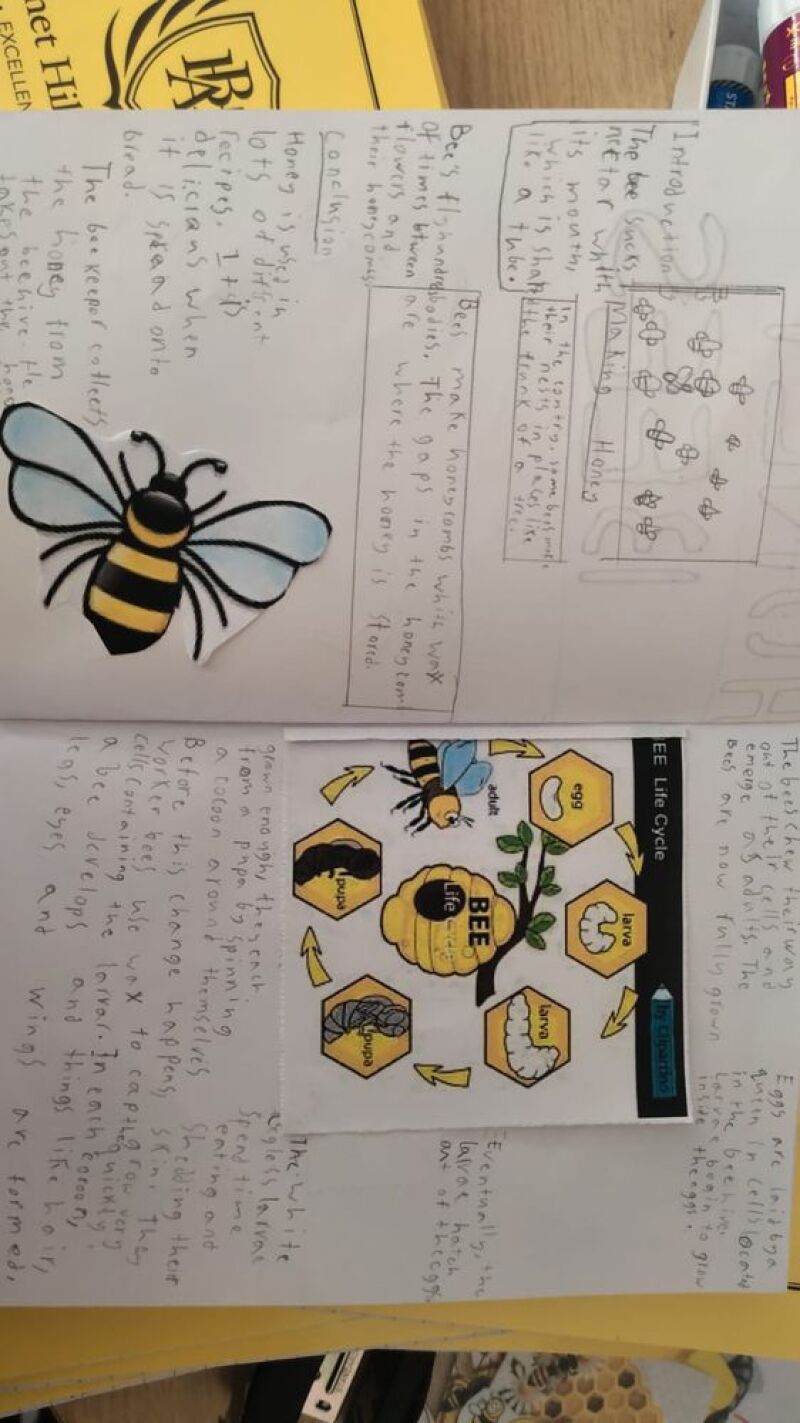 "Introduction
The bee sucks
nectar whith
its mouth,
which is shap
like a tube.
Making Honey
In the contry, some bees make
their nests in places like
the trunk of a tree.
Bee's fly hundreds
of times between
flowers and
their honeycombs
Bees make honeycombs whith wax
bodies. The gaps in the honeycomb
are where the honey is stored.
Conclusion
Honey is used in
lots of different
recipes. It is
delicians when
it is spread onto
bread.
The bee keeper collects
the honey from
the beehive. He
takes out the
The bees chew their way
out of their cells and
emerge as adults. The
Bees are now fully grown
Eggs are laid by a
queen in cells located
in the beehive.
Larvae begin to grow
inside the eggs.
EE Life Cycle
by Clipartino
egg
larva
larva
pupa
pupa
adult
BEE
Life Cycle
Eventually, the
larvae hatch
out of the eggs
The white
legless larvae
spend time
eating and
shedding their
skin. They
grow very
quickly.
grown enough, they each
from a pupa by spinning
a cocoon around themselves
Before this change happens,
worker bees use wax to cap the
cells containing the larvar. In each cocoon,
a bee develops and things like hair,
legs, eyes and wings are formed.
net Hil
EXCELLEN
STA